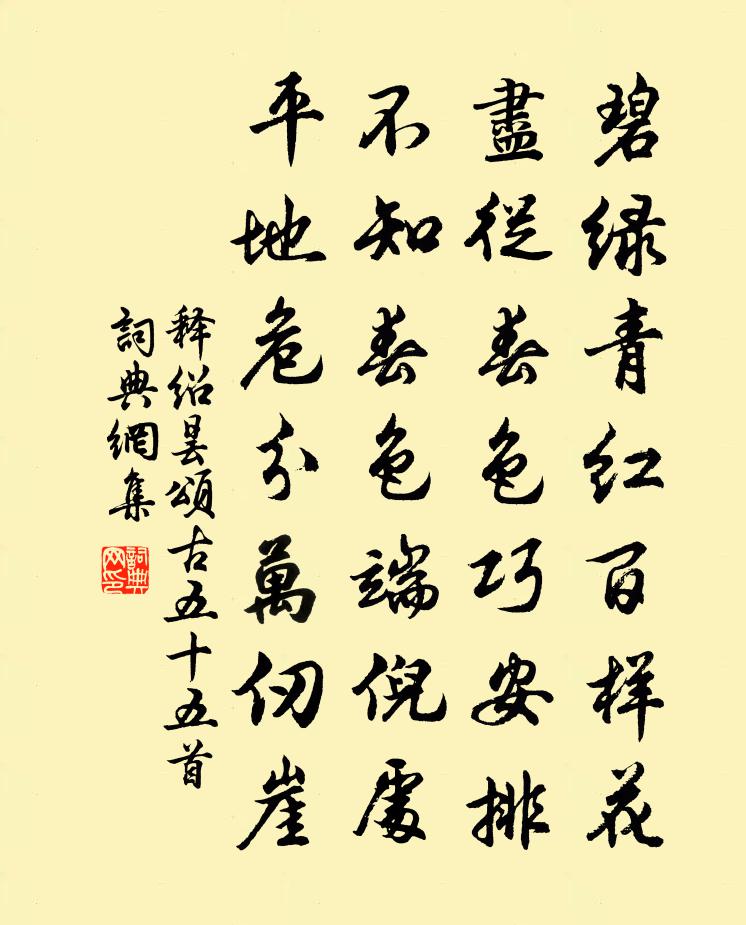 碧绿青红百样花
盡從春色巧安排
不知春色端倪處
平地危分萬仞崖
释绍昙頌古五十五首
詞典網集
詞典网印